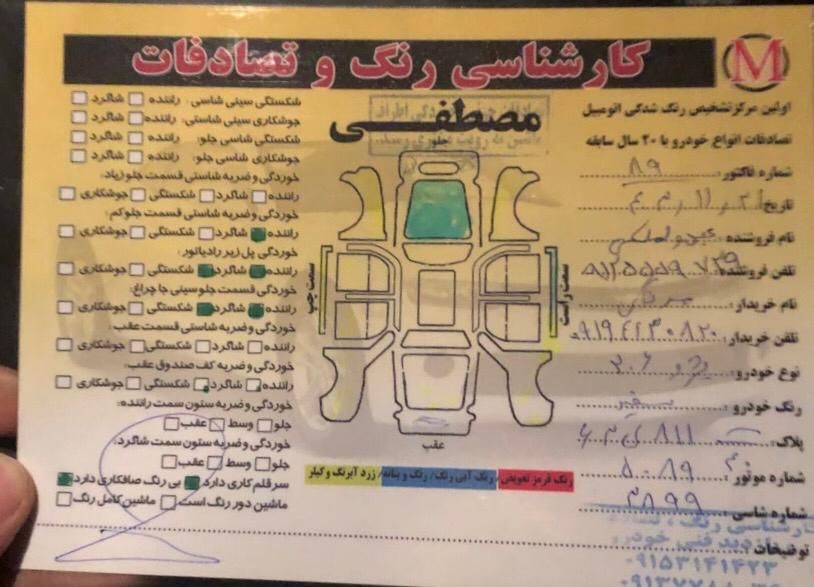 کارشناسی رنگ و تصادفات
M
اولین مرکز تشخیص رنگ شدگی اتومبیل
تصادفات انواع خودرو با ۲۰ سال سابقه
شماره فاکتور: ۸۹
تاریخ:
نام فروشنده:
تلفن فروشنده:
نام خریدار:
تلفن خریدار:
نوع خودرو: پژو ۲۰۶
رنگ خودرو: سفید
پلاک:
شماره موتور: ۵۰۸۹
شماره شاسی: ۲۸۹۹
توضیحات
مصطفی
جلو
سمت چپ
سمت راست
عقب
رنگ قرمز تعویض/ رنگ آبی رنگ/ رنگ و بتانه/ زرد آبرنگ و گیلر
شکستگی سینی شاسی: راننده شاگرد
جوشکاری سینی شاسی: راننده شاگرد
شکستگی شاسی جلو: راننده شاگرد
جوشکاری شاسی جلو: راننده شاگرد
خوردگی و ضربه شاسی قسمت جلو زیاد:
راننده شاگرد شکستگی جوشکاری
خوردگی و ضربه شاسی قسمت جلو کم:
راننده شاگرد شکستگی جوشکاری
خوردگی پل زیر رادیاتور:
راننده شاگرد شکستگی جوشکاری
خوردگی قسمت جلو سینی جا چراغ:
راننده شاگرد شکستگی جوشکاری
خوردگی و ضربه شاسی قسمت عقب:
راننده شاگرد شکستگی جوشکاری
خوردگی و ضربه کف صندوق عقب:
راننده شاگرد شکستگی جوشکاری
خوردگی و ضربه ستون سمت راننده:
جلو وسط عقب
خوردگی و ضربه ستون سمت شاگرد:
جلو وسط عقب
سر قلم کاری دارد بی رنگ صافکاری دارد
ماشین دور رنگ است ماشین کامل رنگ
کارشناسی رنگ ، تصادف
بازدید فنی خودرو
۰۹۱۵۳۱۴۱۴۲۳